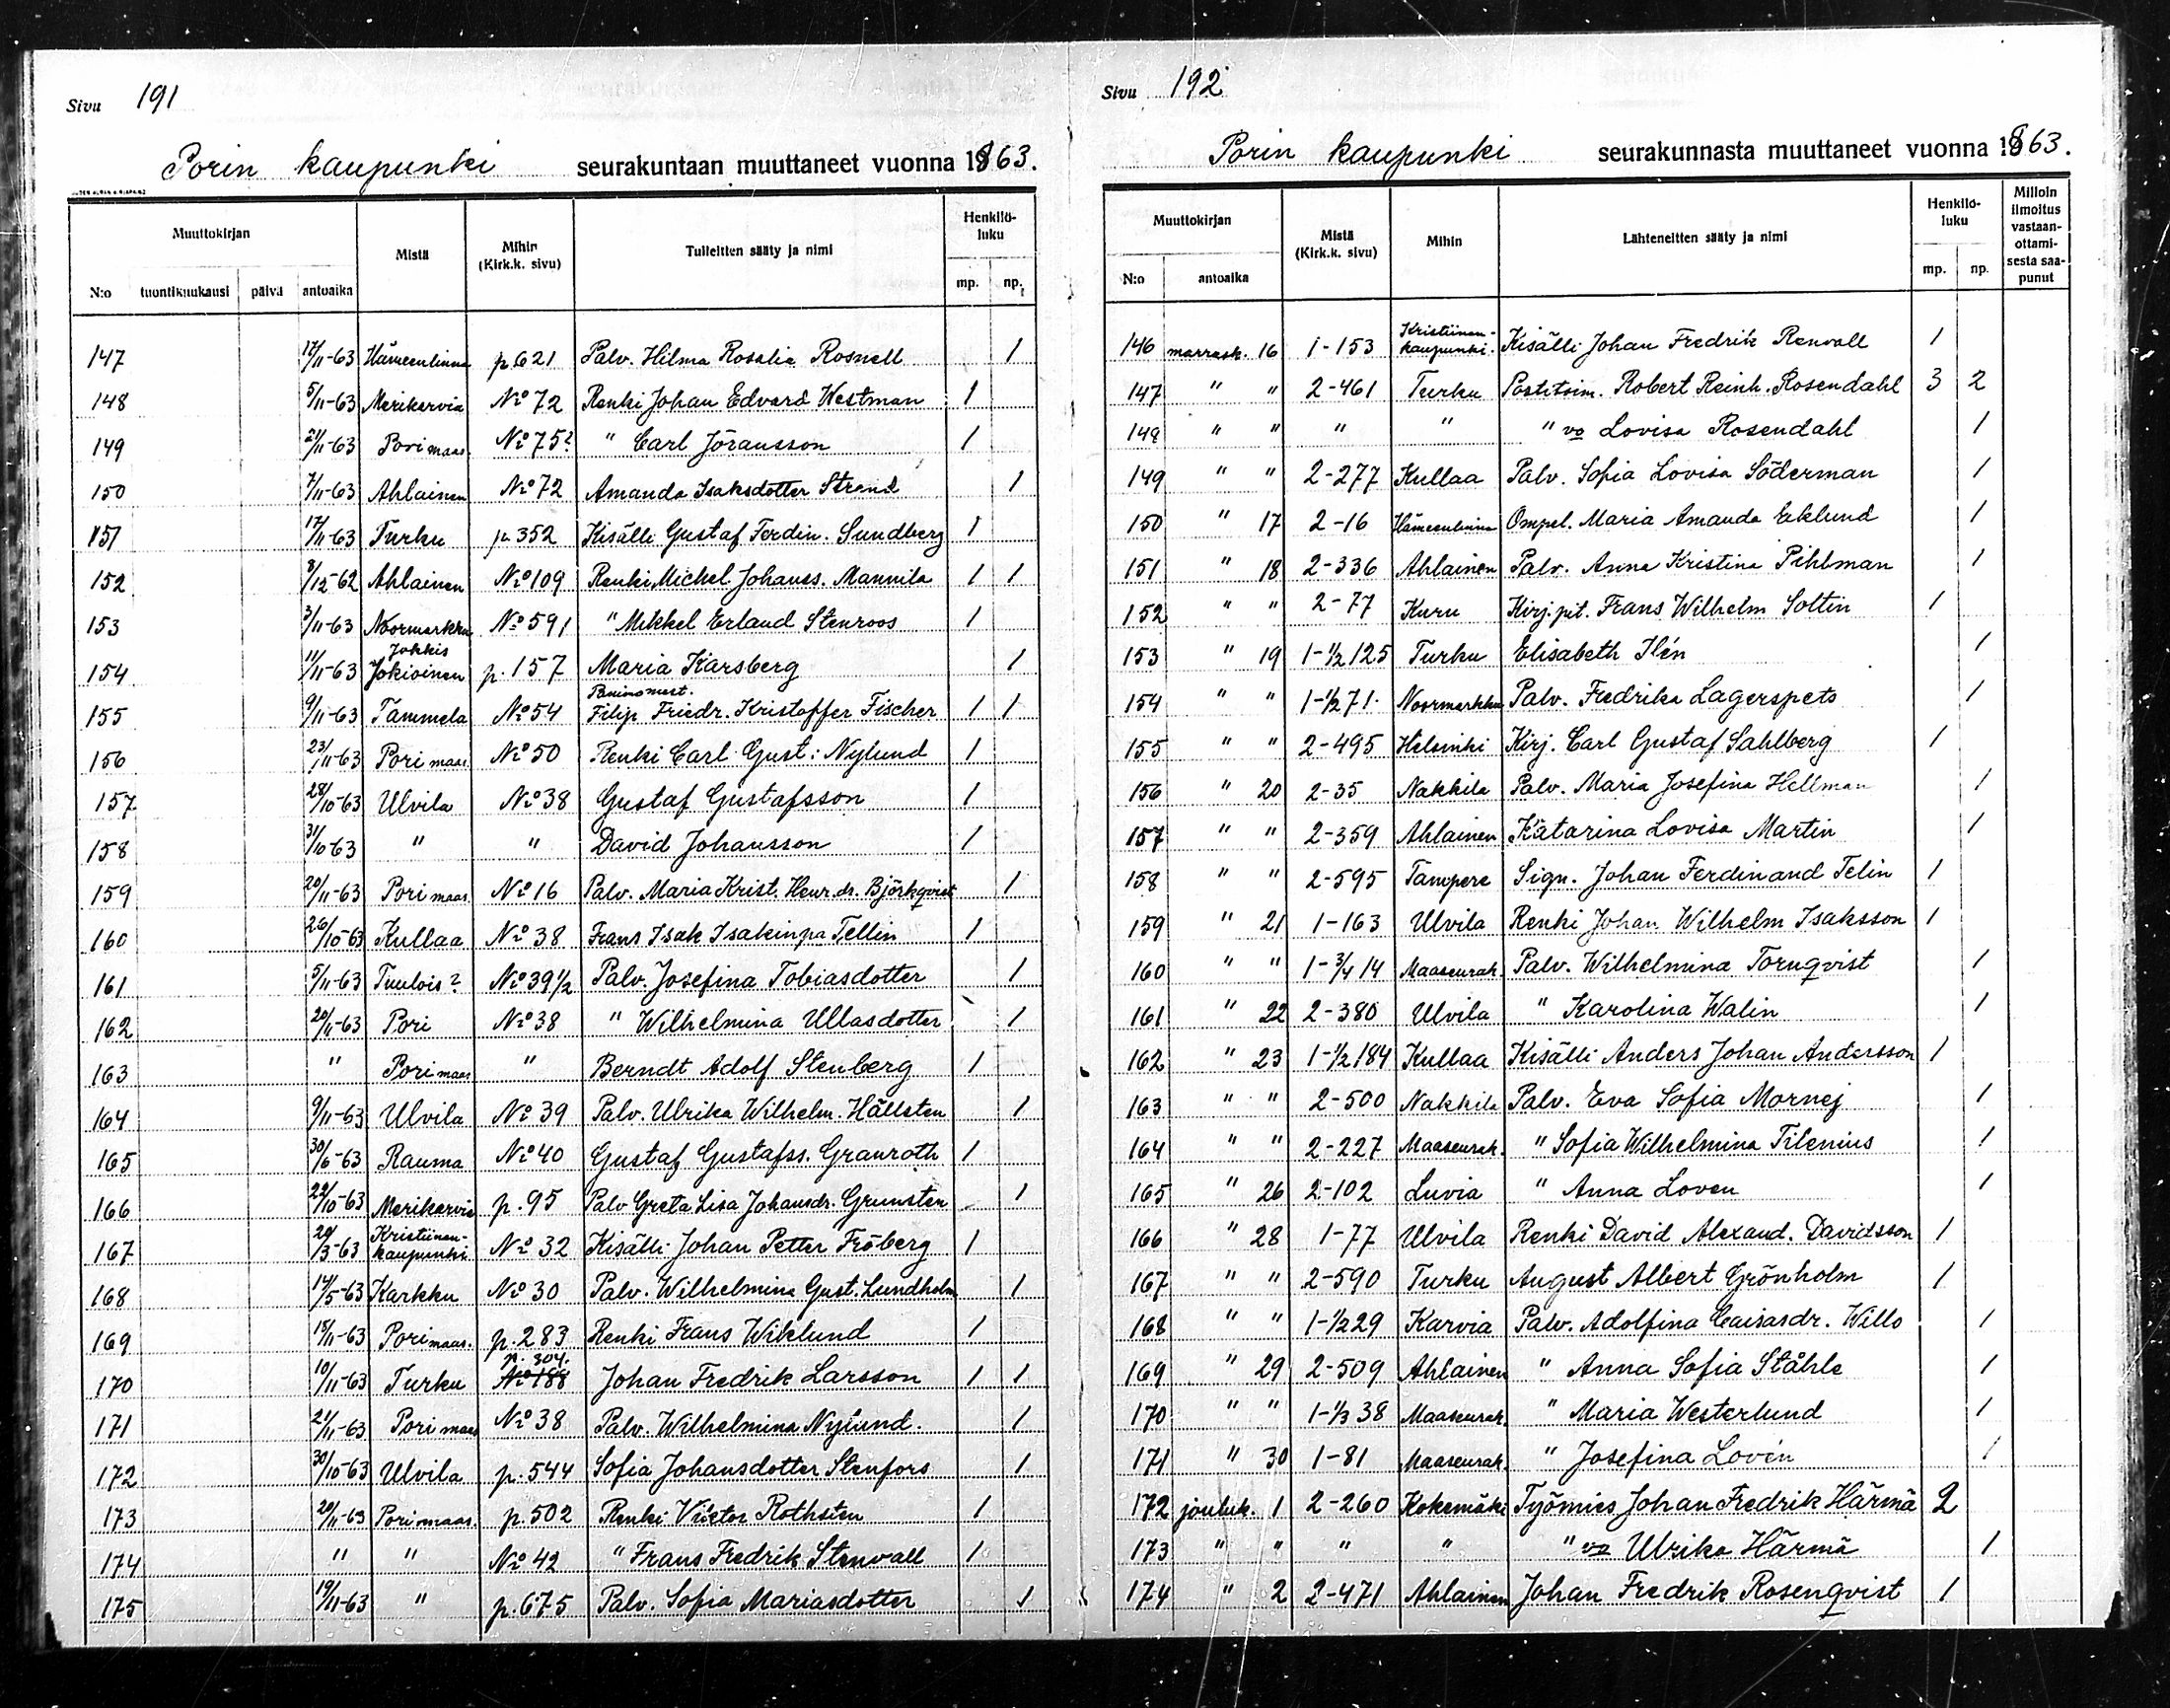 Sivu 191
Porin kaupunki seurakuntaan muuttaneet vuonna 1863.
Muuttokirjan Mistä Mihin (Kirk.k. sivu) Tulleitten sääty ja nimi Henkilö-luku
N:o tuontikuukausi päivä antoaika mp. np.
147 17/11-63 Hämeenlinna p. 621 Palv. Hilma Rosalia Rosnell 1
148 5/11-63 Merikarvia No 72 Renki Johan Edvard Westman 1
149 21/11-63 Pori maas. No 75? " Carl Jöransson 1
150 7/11-63 Ahlainen No 72 Amanda Isaksdotter Strand 1
151 17/11-63 Turku p. 352 Kisälli Gustaf Ferdin. Sundberg 1
152 3/12-62 Ahlainen No 109 Renki Michel Johanss. Mannila 1 1
153 3/11-63 Noormarkku No 591 " Mikkel Erland Stenroos 1
154 11/11-63 Jokkis Jokioinen p. 157 Maria Karsberg 1
155 9/11-63 Tammela No 54 Paninomest. Filip Friedr. Kristoffer Fischer 1 1
156 23/11-63 Pori maas. No 50 Renki Carl Gust: Nylund 1
157 28/10-63 Ulvila No 38 Gustaf Gustafsson 1
158 31/10-63 " " David Johansson 1
159 20/11-63 Pori maas. No 16 Palv. Maria Krist. Henr.dr. Björkqvist 1
160 26/10-63 Kullaa No 38 Frans Isak Isakinpa Tellin 1
161 5/11-63 Tuulois? No 39 1/2 Palv. Josefina Tobiasdotter 1
162 20/11-63 Pori No 38 " Wilhelmina Ullasdotter 1
163 " Pori maas " Berndt Adolf Stenberg 1
164 9/11-63 Ulvila No 39 Palv. Ulrika Wilhelm. Hällsten 1
165 30/6-63 Rauma No 40 Gustaf Gustafss. Granroth 1
166 22/10-63 Merikarvia p. 95 Palv Greta Lisa Johansdr. Grunster 1
167 20/3-63 Kristiinan-kaupunki No 32 Kisälli Johan Petter Fröberg 1
168 14/5-63 Karkku No 30 Palv. Wilhelmina Gust. Lundholm 1
169 18/11-63 Pori maas. p. 283 Renki Frans Wiklund 1
170 10/11-63 Turku p. 304. No 188 Johan Fredrik Larsson 1 1
171 21/11-63 Pori maas No 38 Palv. Wilhelmina Nylund. 1
172 30/10-63 Ulvila p. 544 Sofia Johansdotter Stenfors 1
173 20/11-63 Pori maas. p. 502 Renki Victor Rothsten 1
174 " " No 42 " Frans Fredrik Stenvall 1
175 19/11-63 " p. 675 Palv. Sofia Mariasdotter 1
Sivu 192
Porin kaupunki seurakunnasta muuttaneet vuonna 1863.
Muuttokirjan Mistä (Kirk.k. sivu) Mihin Lähteneitten sääty ja nimi Henkilö-luku Milloin ilmoitus vastaan-ottami-sesta saa-punut
N:o antoaika mp. np.
146 marrask. 16 1-153 Kristiinan-kaupunki. Kisälli Johan Fredrik Renvall 1
147 " " 2-461 Turku Postitoim. Robert Reinh. Rosendahl 3 2
148 " " " " " vo Lovisa Rosendahl 1
149 " " 2-277 Kullaa Palv. Sofia Lovisa Söderman 1
150 " 17 2-16 Hämeenlinna Ompel. Maria Amanda Eklund 1
151 " 18 2-336 Ahlainen Palv. Anna Kristina Pihlman 1
152 " " 2-77 Kuru Kirj.pit. Frans Wilhelm Soltin 1
153 " 19 1-1/2 125 Turku Elisabeth Ilén 1
154 " " 1-1/2 71. Noormarkku Palv. Fredrika Lagerspets 1
155 " " 2-495 Helsinki Kirj. Carl Gustaf Sahlberg 1
156 " 20 2-35 Nakkila Palv. Maria Josefina Hellman 1
157 " " 2-359 Ahlainen Katarina Lovisa Martin 1
158 " " 2-595 Tampere Sign. Johan Ferdinand Telin 1
159 " 21 1-163 Ulvila Renki Johan Wilhelm Isaksson 1
160 " " 1-3/4 14 Maaseurak. Palv. Wilhelmina Tornqvist 1
161 " 22 2-380 Ulvila " Karolina Walin 1
162 " 23 1-1/2 184 Kullaa Kisälli Anders Johan Andersson 1
163 " " 2-500 Nakkila Palv. Eva Sofia Mornej 1
164 " " 2-227 Maaseurak. " Sofia Wilhelmina Tilenius 1
165 " 26 2-102 Luvia " Anna Loven 1
166 " 28 1-77 Ulvila Renki David Alexand. Davidsson 1
167 " " 2-590 Turku August Albert Grönholm 1
168 " " 1-1/2 29 Karvia Palv. Adolfina Caisasdr. Willo 1
169 " 29 2-509 Ahlainen " Anna Sofia Ståhle 1
170 " " 1-1/3 38 Maaseurak. " Maria Westerlund 1
171 " 30 1-81 Maaseurak. " Josefina Lovén 1
172 jouluk. 1 2-260 Kokemäki Työmies Johan Fredrik Härmä 2
173 " " " " " vo Ulrika Härmä 1
174 " 2 2-471 Ahlainen Johan Fredrik Rosenqvist 1